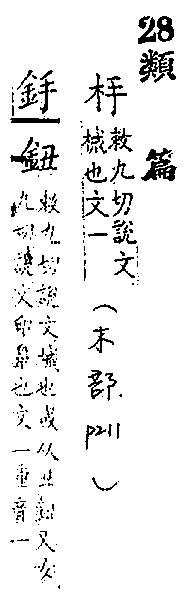 28類篇
杽
敕九切說文
械也文一
(木部. p211)
鈕
敕九切說文械也或从丑鈕又女
九切說文印鼻也文一重音一